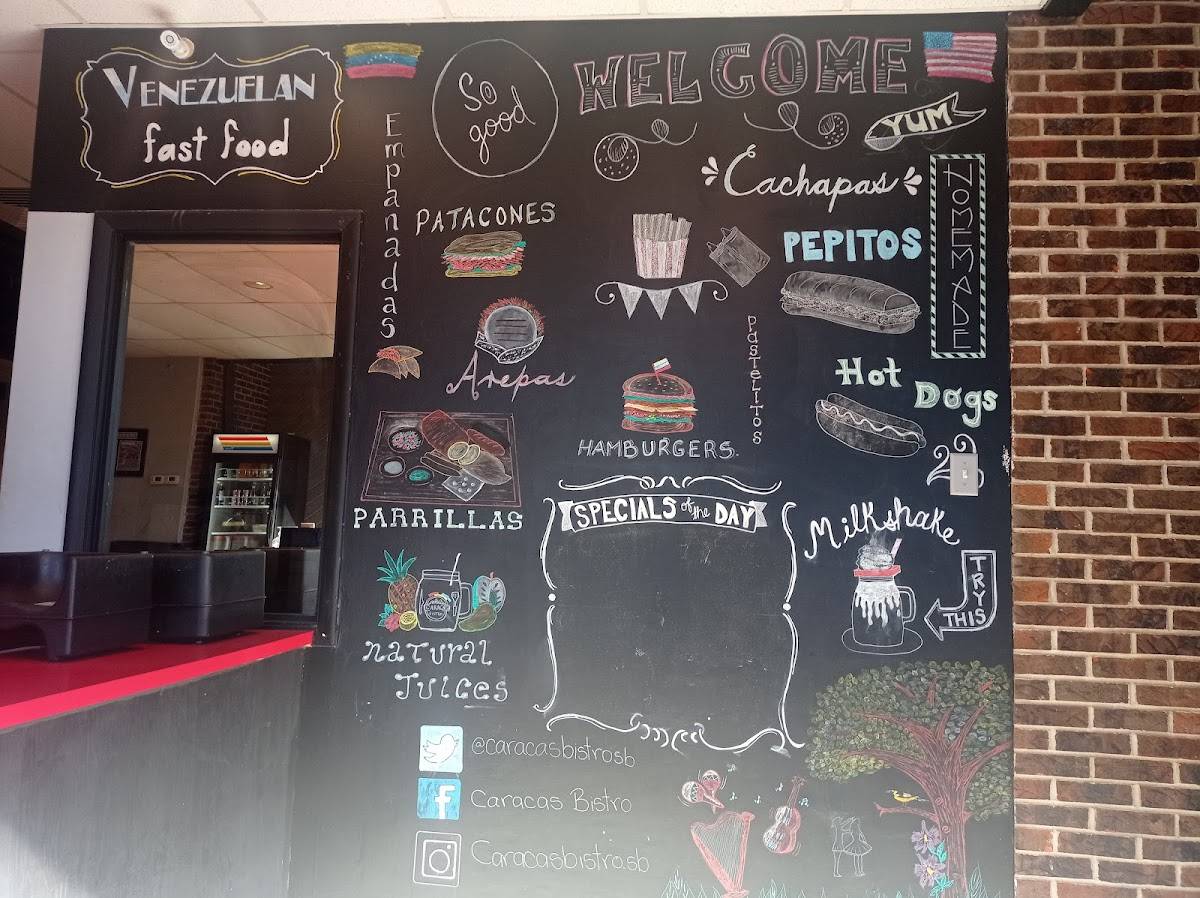 VENEZUELAN
fast food
So
good
WELCOME
YUM
Empanadas
PATACONES
Cachapas
HOMEMADE
PEPITOS
Arepas
PASTELITOS
Hot
Dogs
HAMBURGERS.
PARRILLAS
SPECIALS of the DAY
Milkshake
TRY
THIS
natural
Juices
@caracasbistrosb
f
Caracas Bistro
Caracasbistrosb